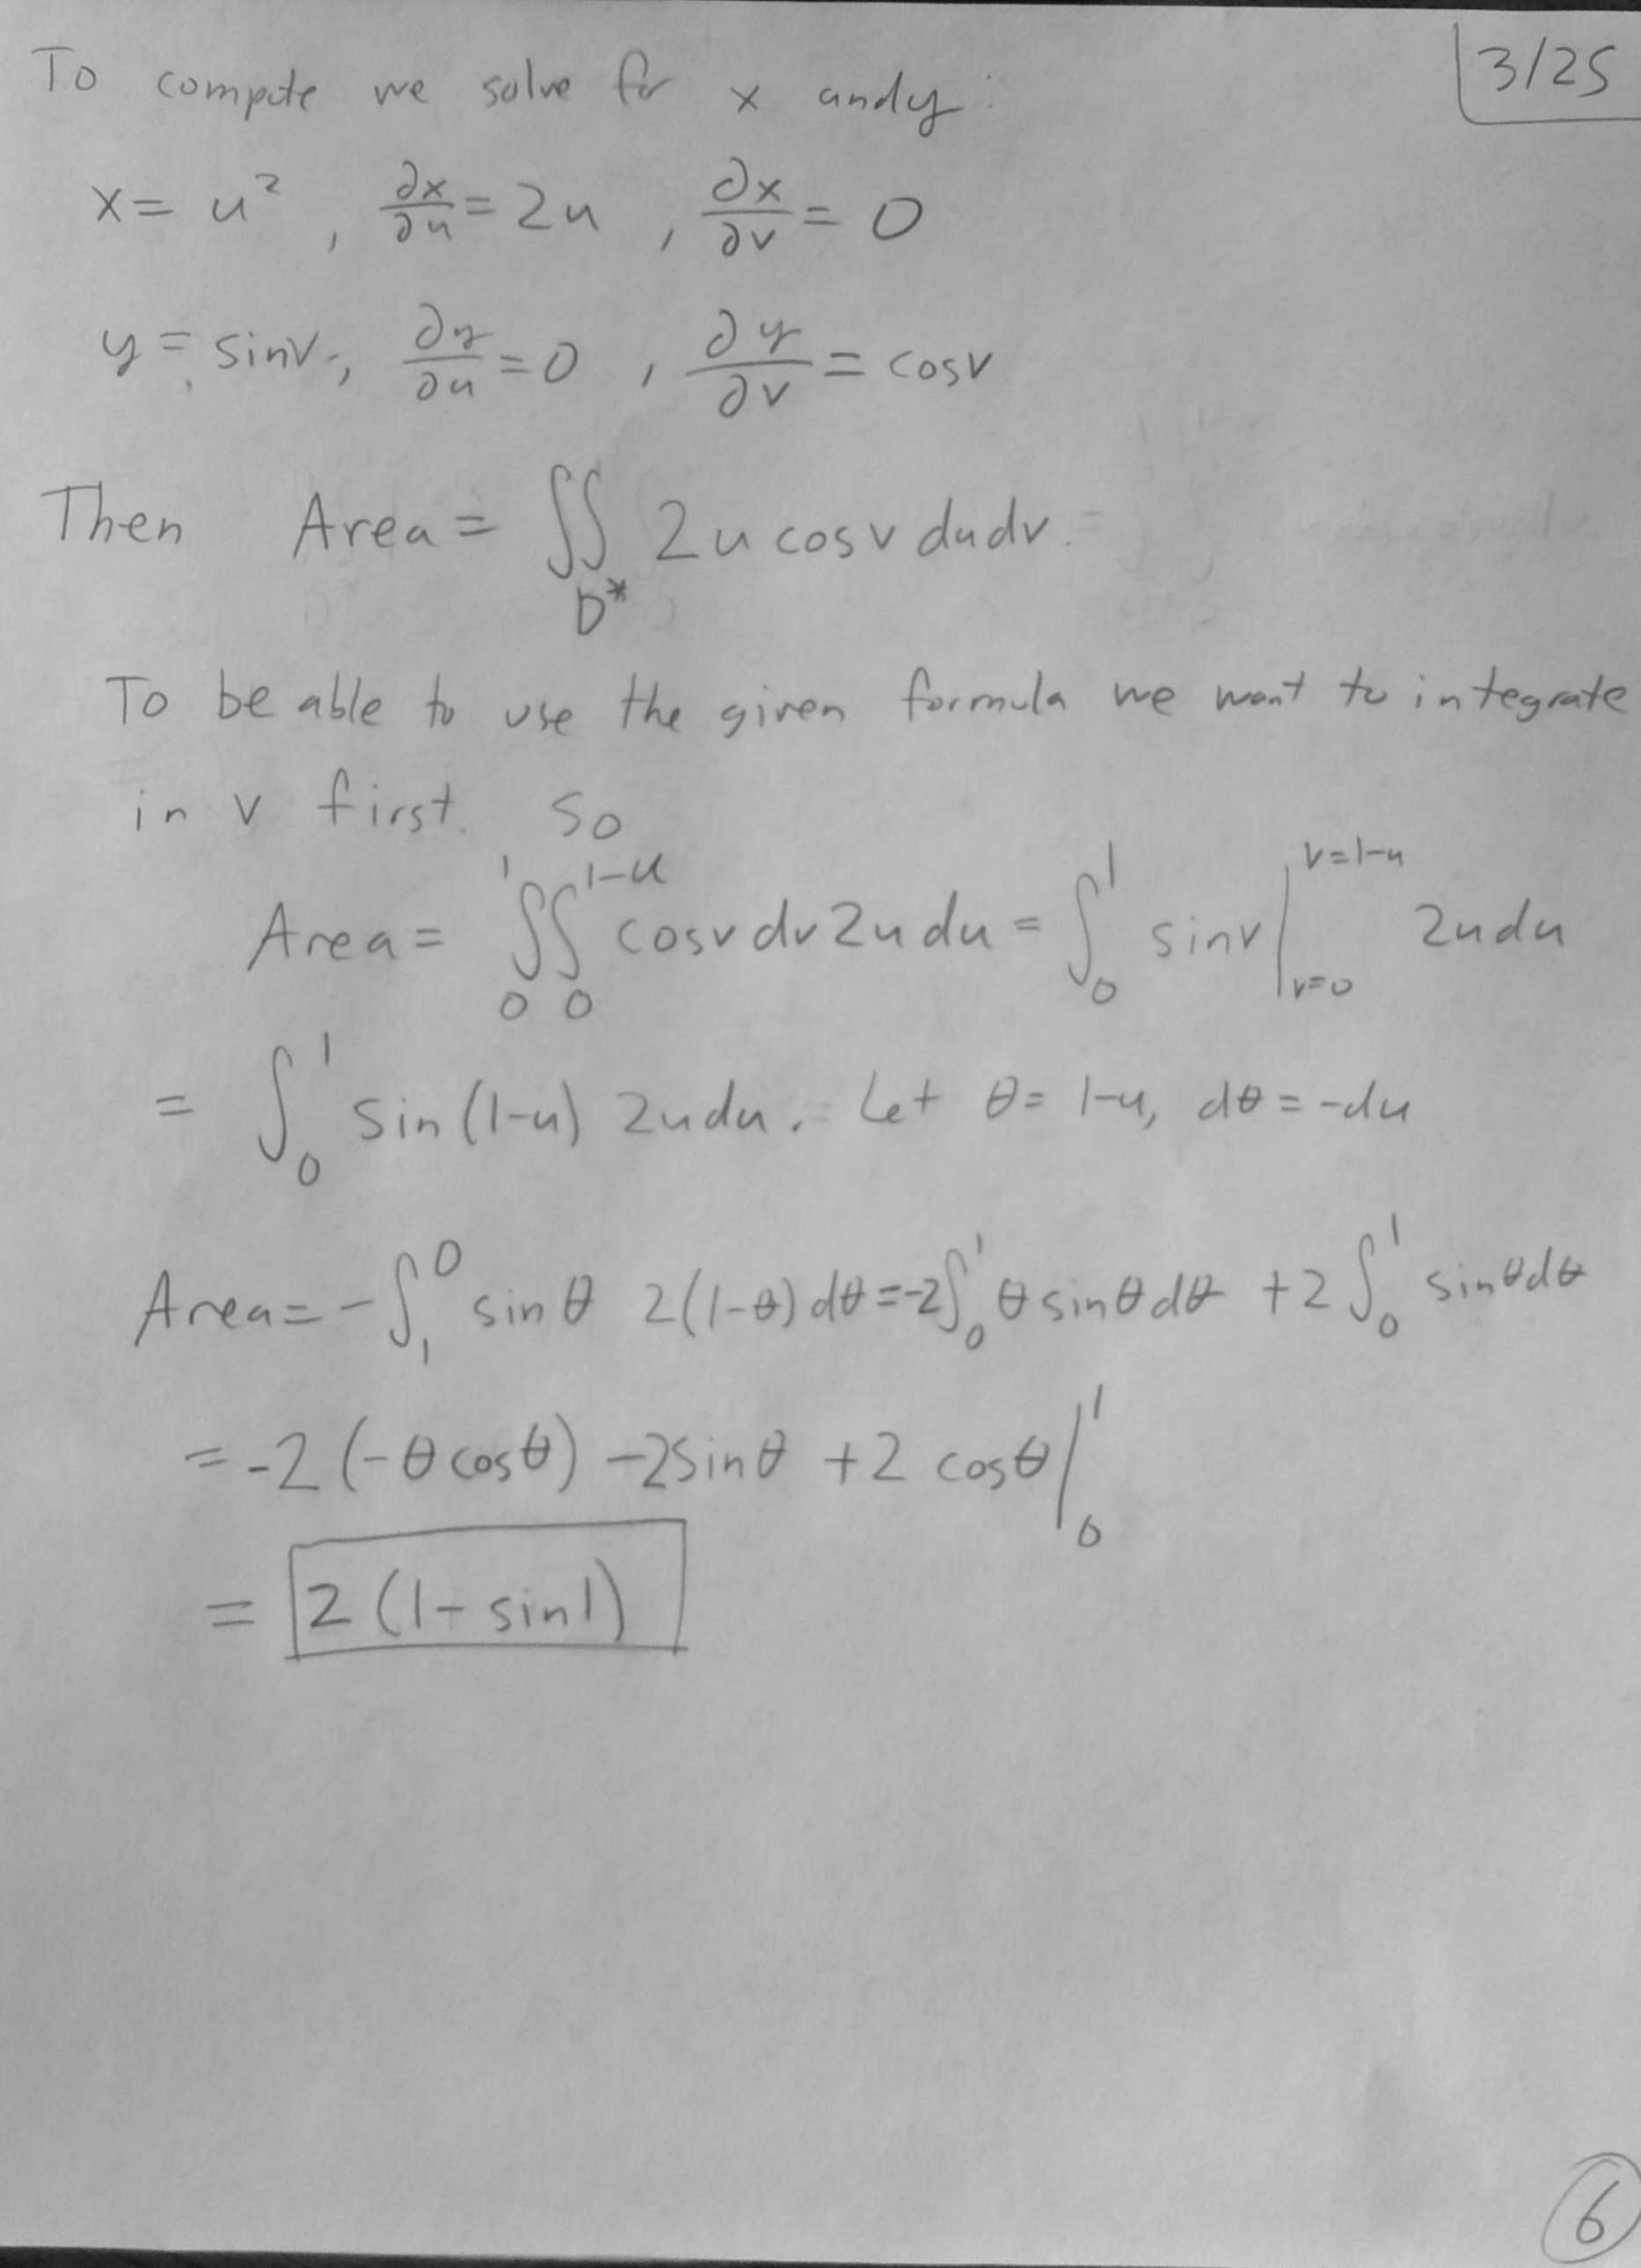 3/25
To compute we solve for x and y:
x = u², ∂x/∂u = 2u, ∂x/∂v = 0
y = sinv, ∂y/∂u = 0, ∂y/∂v = cosv
Then Area = ∬_{D*} 2u cosv dudv =
To be able to use the given formula we want to integrate
in v first. So
Area = ∫_0^1 ∫_0^{1-u} cosv dv 2u du = ∫_0^1 sinv |_{v=0}^{v=1-u} 2u du
= ∫_0^1 sin(1-u) 2u du. Let θ = 1-u, dθ = -du
Area = -∫_1^0 sinθ 2(1-θ) dθ = -2∫_0^1 θ sinθ dθ + 2∫_0^1 sinθ dθ
= -2(-θ cosθ) - 2sinθ + 2 cosθ |_0^1
= 2(1 - sin1)
6